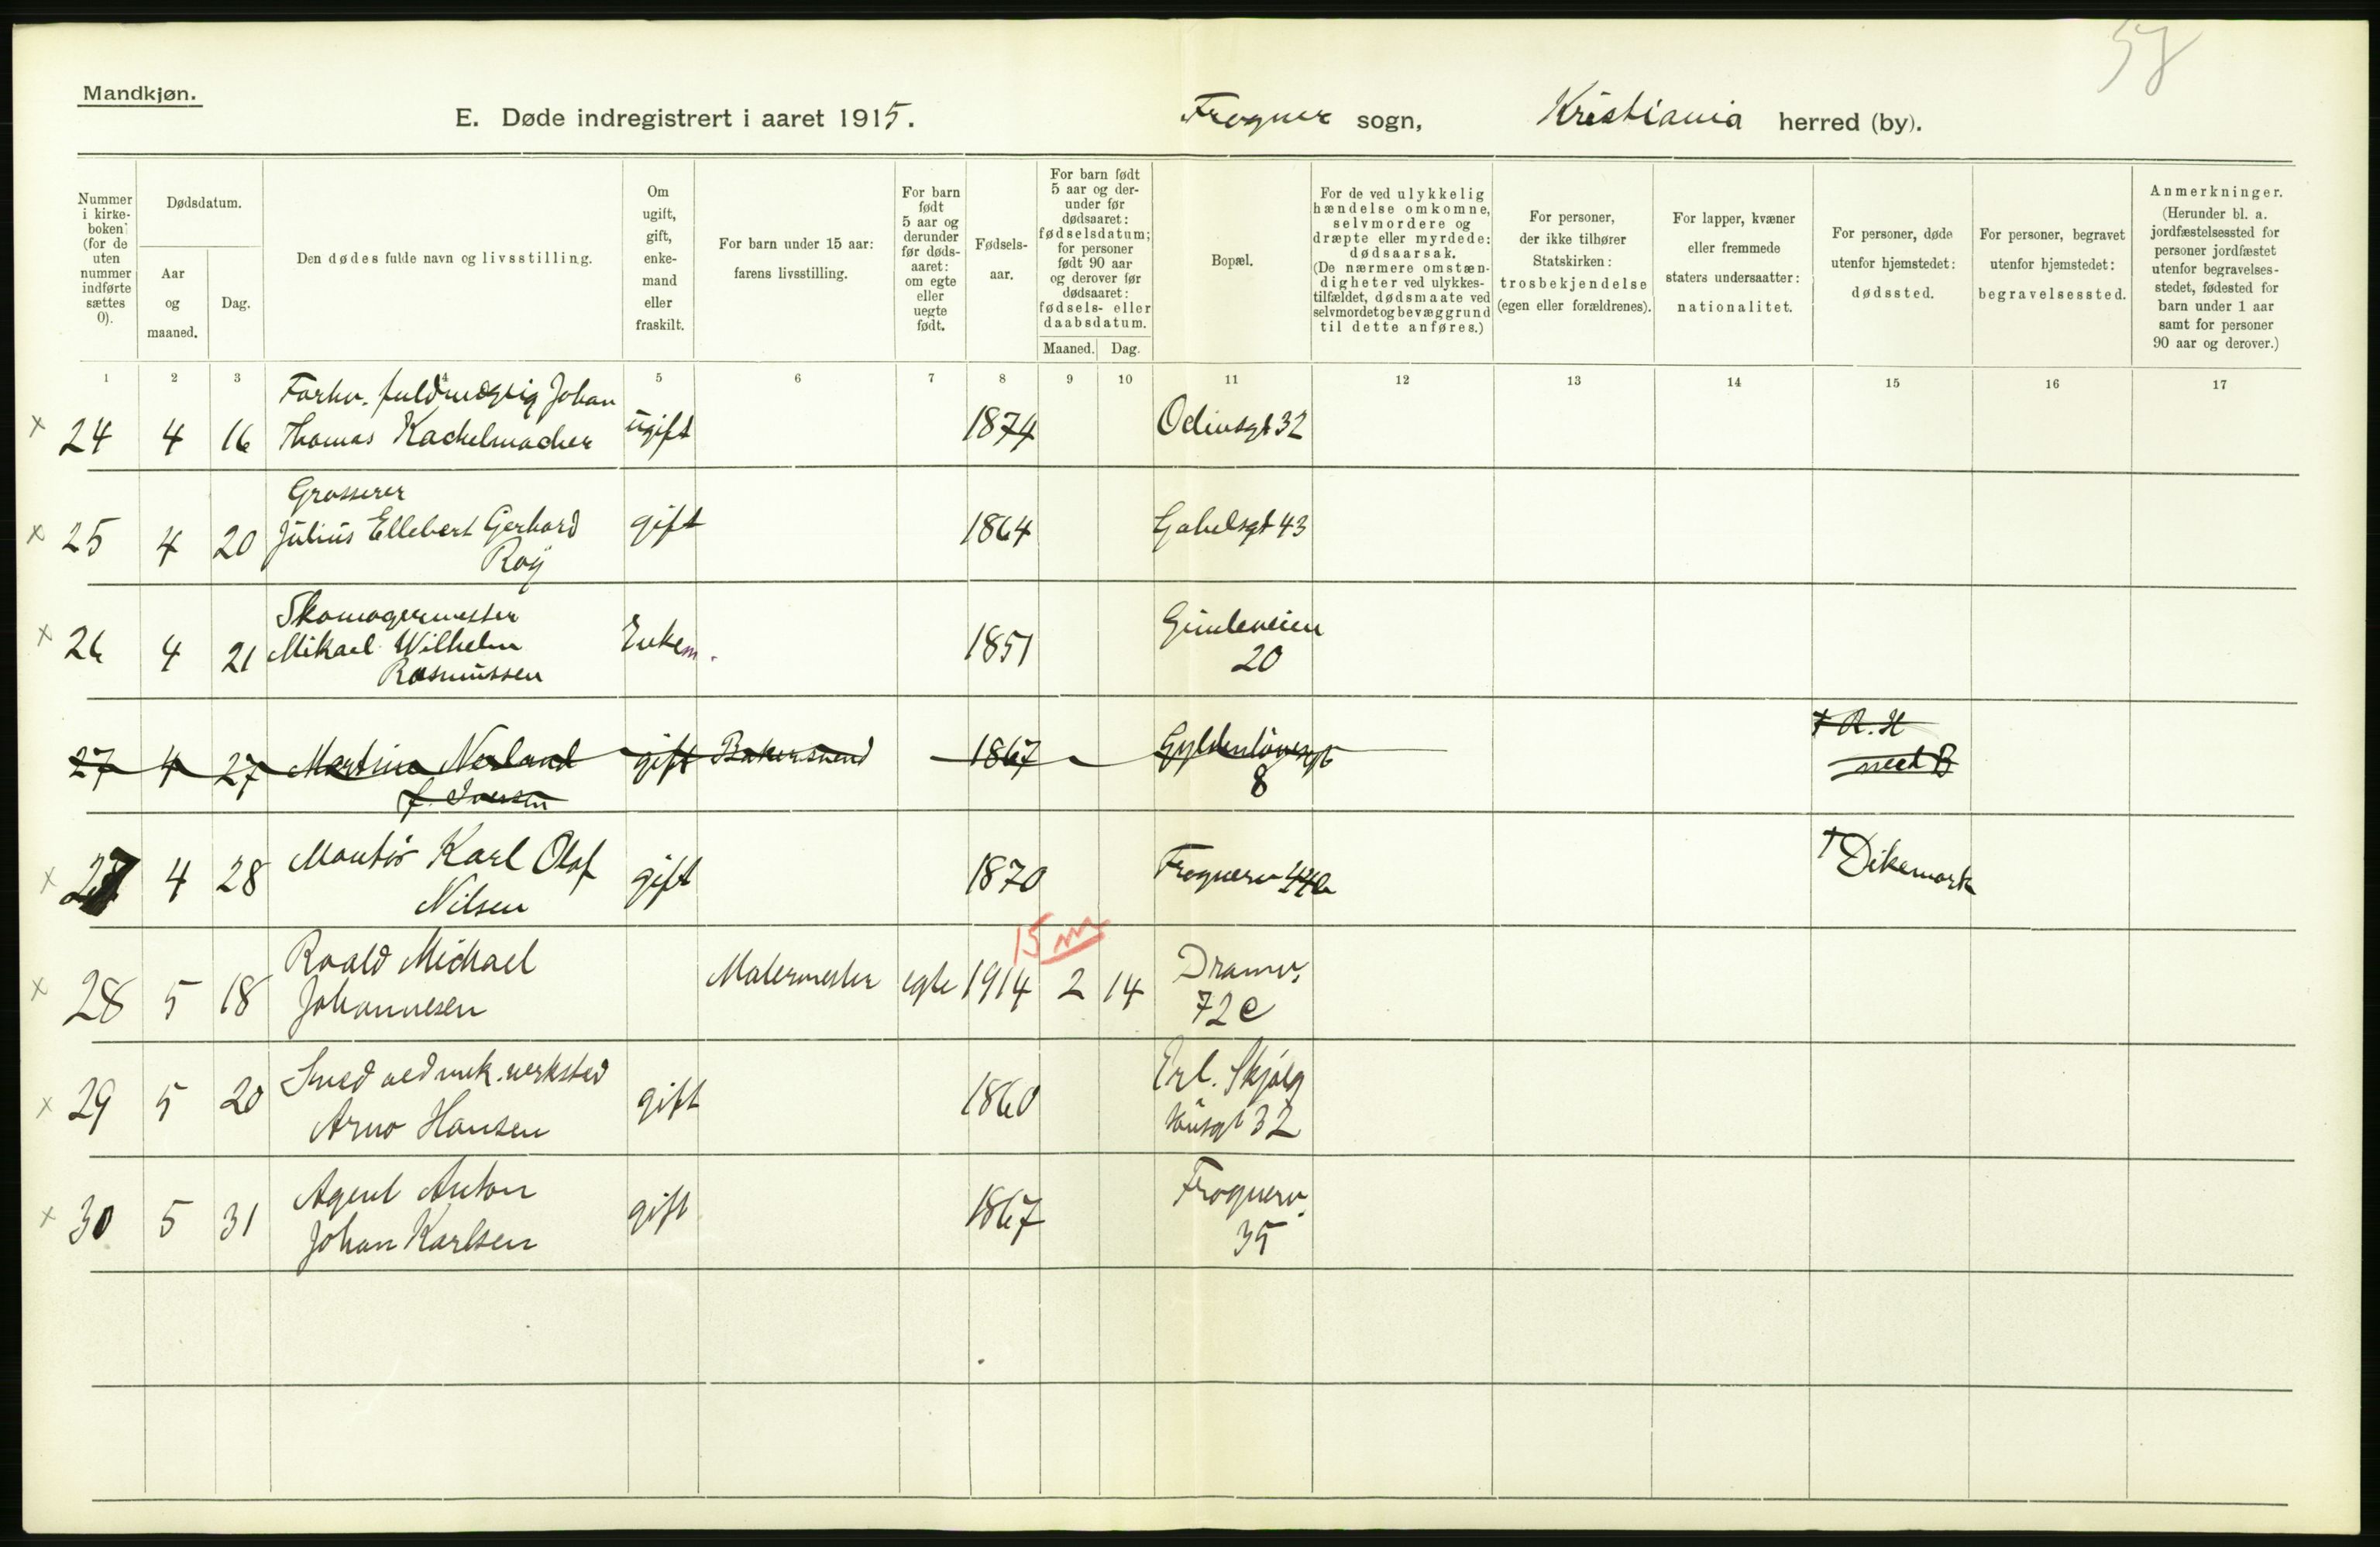 57
Mandkjøn.
E. Døde indregistrert i aaret 1915. Frogner sogn, Kristiania herred (by).
Nummer i kirke- boken (for de uten nummer indførte sættes 0).
Dødsdatum.
Aar og maaned.
Dag.
Den dødes fulde navn og livsstilling.
Om ugift, gift, enke- mand eller fraskilt.
For barn under 15 aar: farens livsstilling.
For barn født 5 aar og derunder før døds- aaret: om egte eller uegte født.
Fødsels- aar.
For barn født 5 aar og der- under før dødsaaret: fødselsdatum; for personer født 90 aar og derover før dødsaaret: fødsels- eller daabsdatum.
Maaned. Dag.
Bopæl.
For de ved ulykkelig hændelse omkomne, selvmordere og dræpte eller myrdede: dødsaarsak. (De nærmere omstæn- digheter ved ulykkes- tilfældet, dødsmaate ved selvmordet og bevæggrund til dette anføres.)
For personer, der ikke tilhører Statskirken: trosbekjendelse (egen eller forældrenes).
For lapper, kvæner eller fremmede staters undersaatter: nationalitet.
For personer, døde utenfor hjemstedet: dødssted.
For personer, begravet utenfor hjemstedet: begravelsessted.
Anmerkninger. (Herunder bl. a. jordfæstelsessted for personer jordfæstet utenfor begravelses- stedet, fødested for barn under 1 aar samt for personer 90 aar og derover.)
1 2 3 4 5 6 7 8 9 10 11 12 13 14 15 16 17
Forhv. fuldmægtig Johan
x 24 4 16 Thomas Kachelmacher ugift 1874 Odinsgt 32
Grosserer
x 25 4 20 Julius Ellebert Gerhard gift 1864 Gabelsgt 43
Roij
Skomagermester
x 26 4 21 Mikael Wilhelm Enkem. 1851 Gimleveien
Rasmussen 20
27 4 27 Martina Nerland gift Bakersvend 1867 Gyldenløvesgt † R. H
f. Iversen 8 med B
x 27 4 28 Montör Karl Olaf gift 1870 Frognerv 44b † Dikemark
Nilsen
15 m
Roald Michael Dramv.
x 28 5 18 Johannesen Malermester egte 1914 2 14 72 c
Smed ved mek. verksted Erl. Skjalg
x 29 5 20 Arno Hansen gift 1860 sönsgt 32
Agent Anton Frognerv.
x 30 5 31 Johan Karlsen gift 1867 35